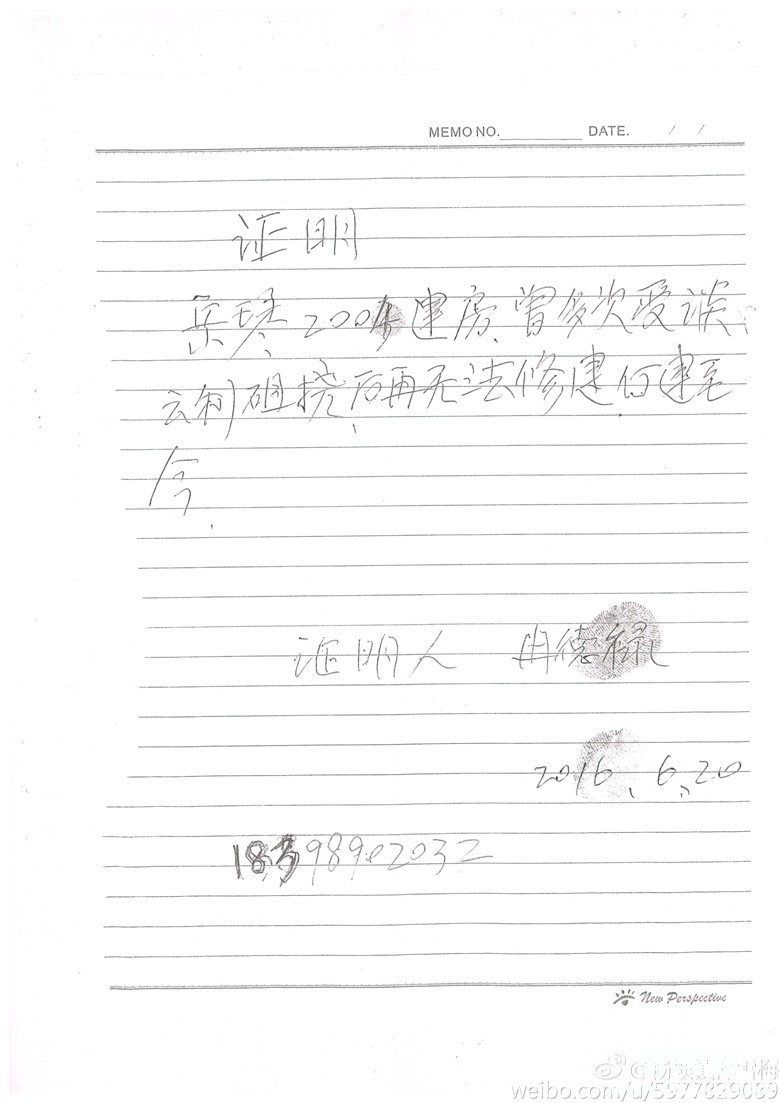 MEMO NO. DATE. / /
证明
2004建房、曾多次受谈、
云利阻挠、后再无法修建 建至
今.
证明人 冉德禄
2016、6、20
18398902032
New Perspective
weibo.com/u/5977829089